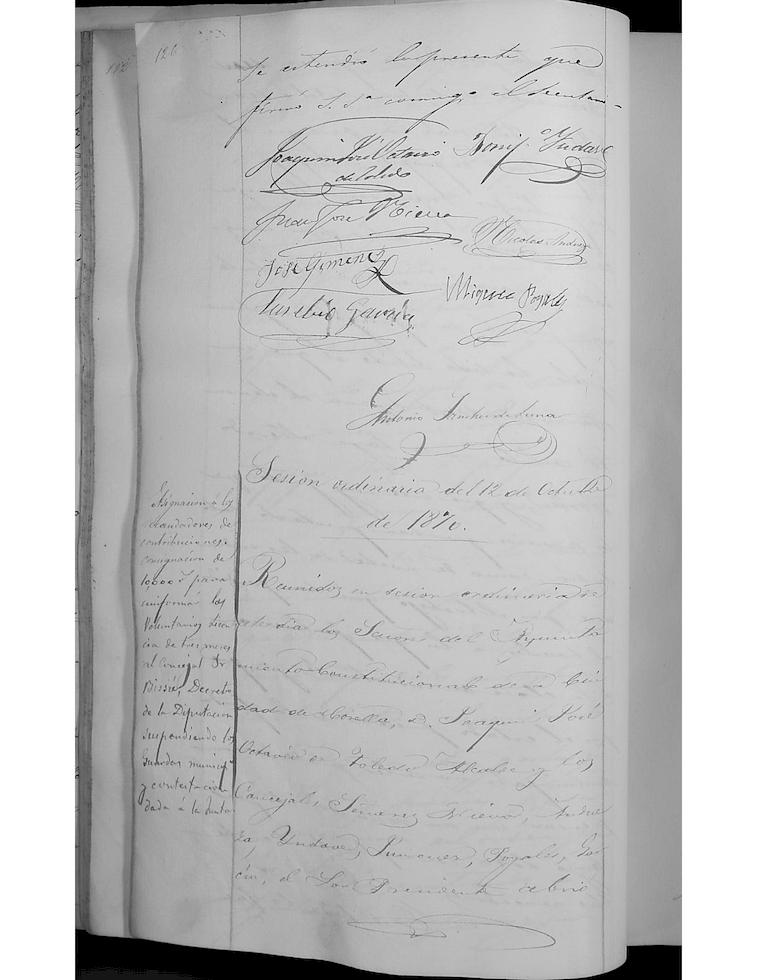 126
se estendió la presente que
firmó S. Sª conmigo el Secretario
Joaquin José Octavio
de Toledo
Bonifº Yndave
Juan José Nieva
Nicolas Andue
José Gimenez
Miguel Poyales
Eusebio García
Antonio Sanchez de Luna
Sesion ordinaria del 12 de Octubre
de 1870.
Asignacion á los
recaudadores de
contribuciones.
consignacion de
10,000 rˢ para
uniformar los
Voluntarios, licen
cia de tres meses
al Concejal Sr
Decreto
de la Diputacion
suspendiendo los
Guardas municipˢ
y contestacion
dada á la Junta
Reunidos en sesion ordinaria de
este dia los Señores del Ayunta
miento Constitucional de la Ciu
dad de Corella, D. Joaquin José
Octavio de Toledo Alcalde y los
Concejales Señores Nieva, Andue
za, Yndave, Jimenez, Poyales, Gar
cia, el Sor Presidente abrió